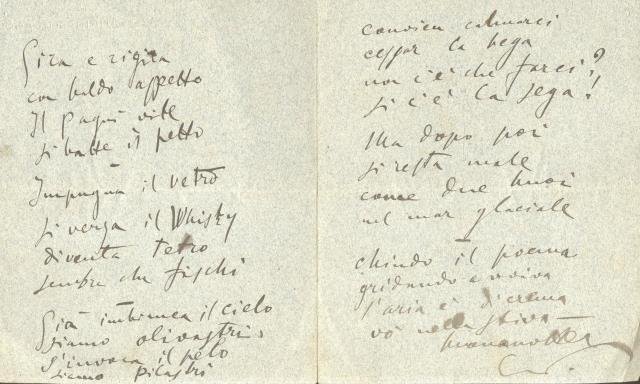 Gira e rigira
con baldo aspetto
Il pagui vile
si batte il petto
Impugna il vetro
si versa il Whisky
diventa tetro
sembra che fischi
Già imbianca il cielo
siamo olivastri.
S'invoca il pelo
siamo pilastri
convien calmarci
cessar la bega
non c'è che farci?
si c'è la sega!
Ma dopo poi
si resta male
come due buoi
nel mar glaciale
chiudo il poema
gridando evviva
l'aria è di crema
vò nella stiva